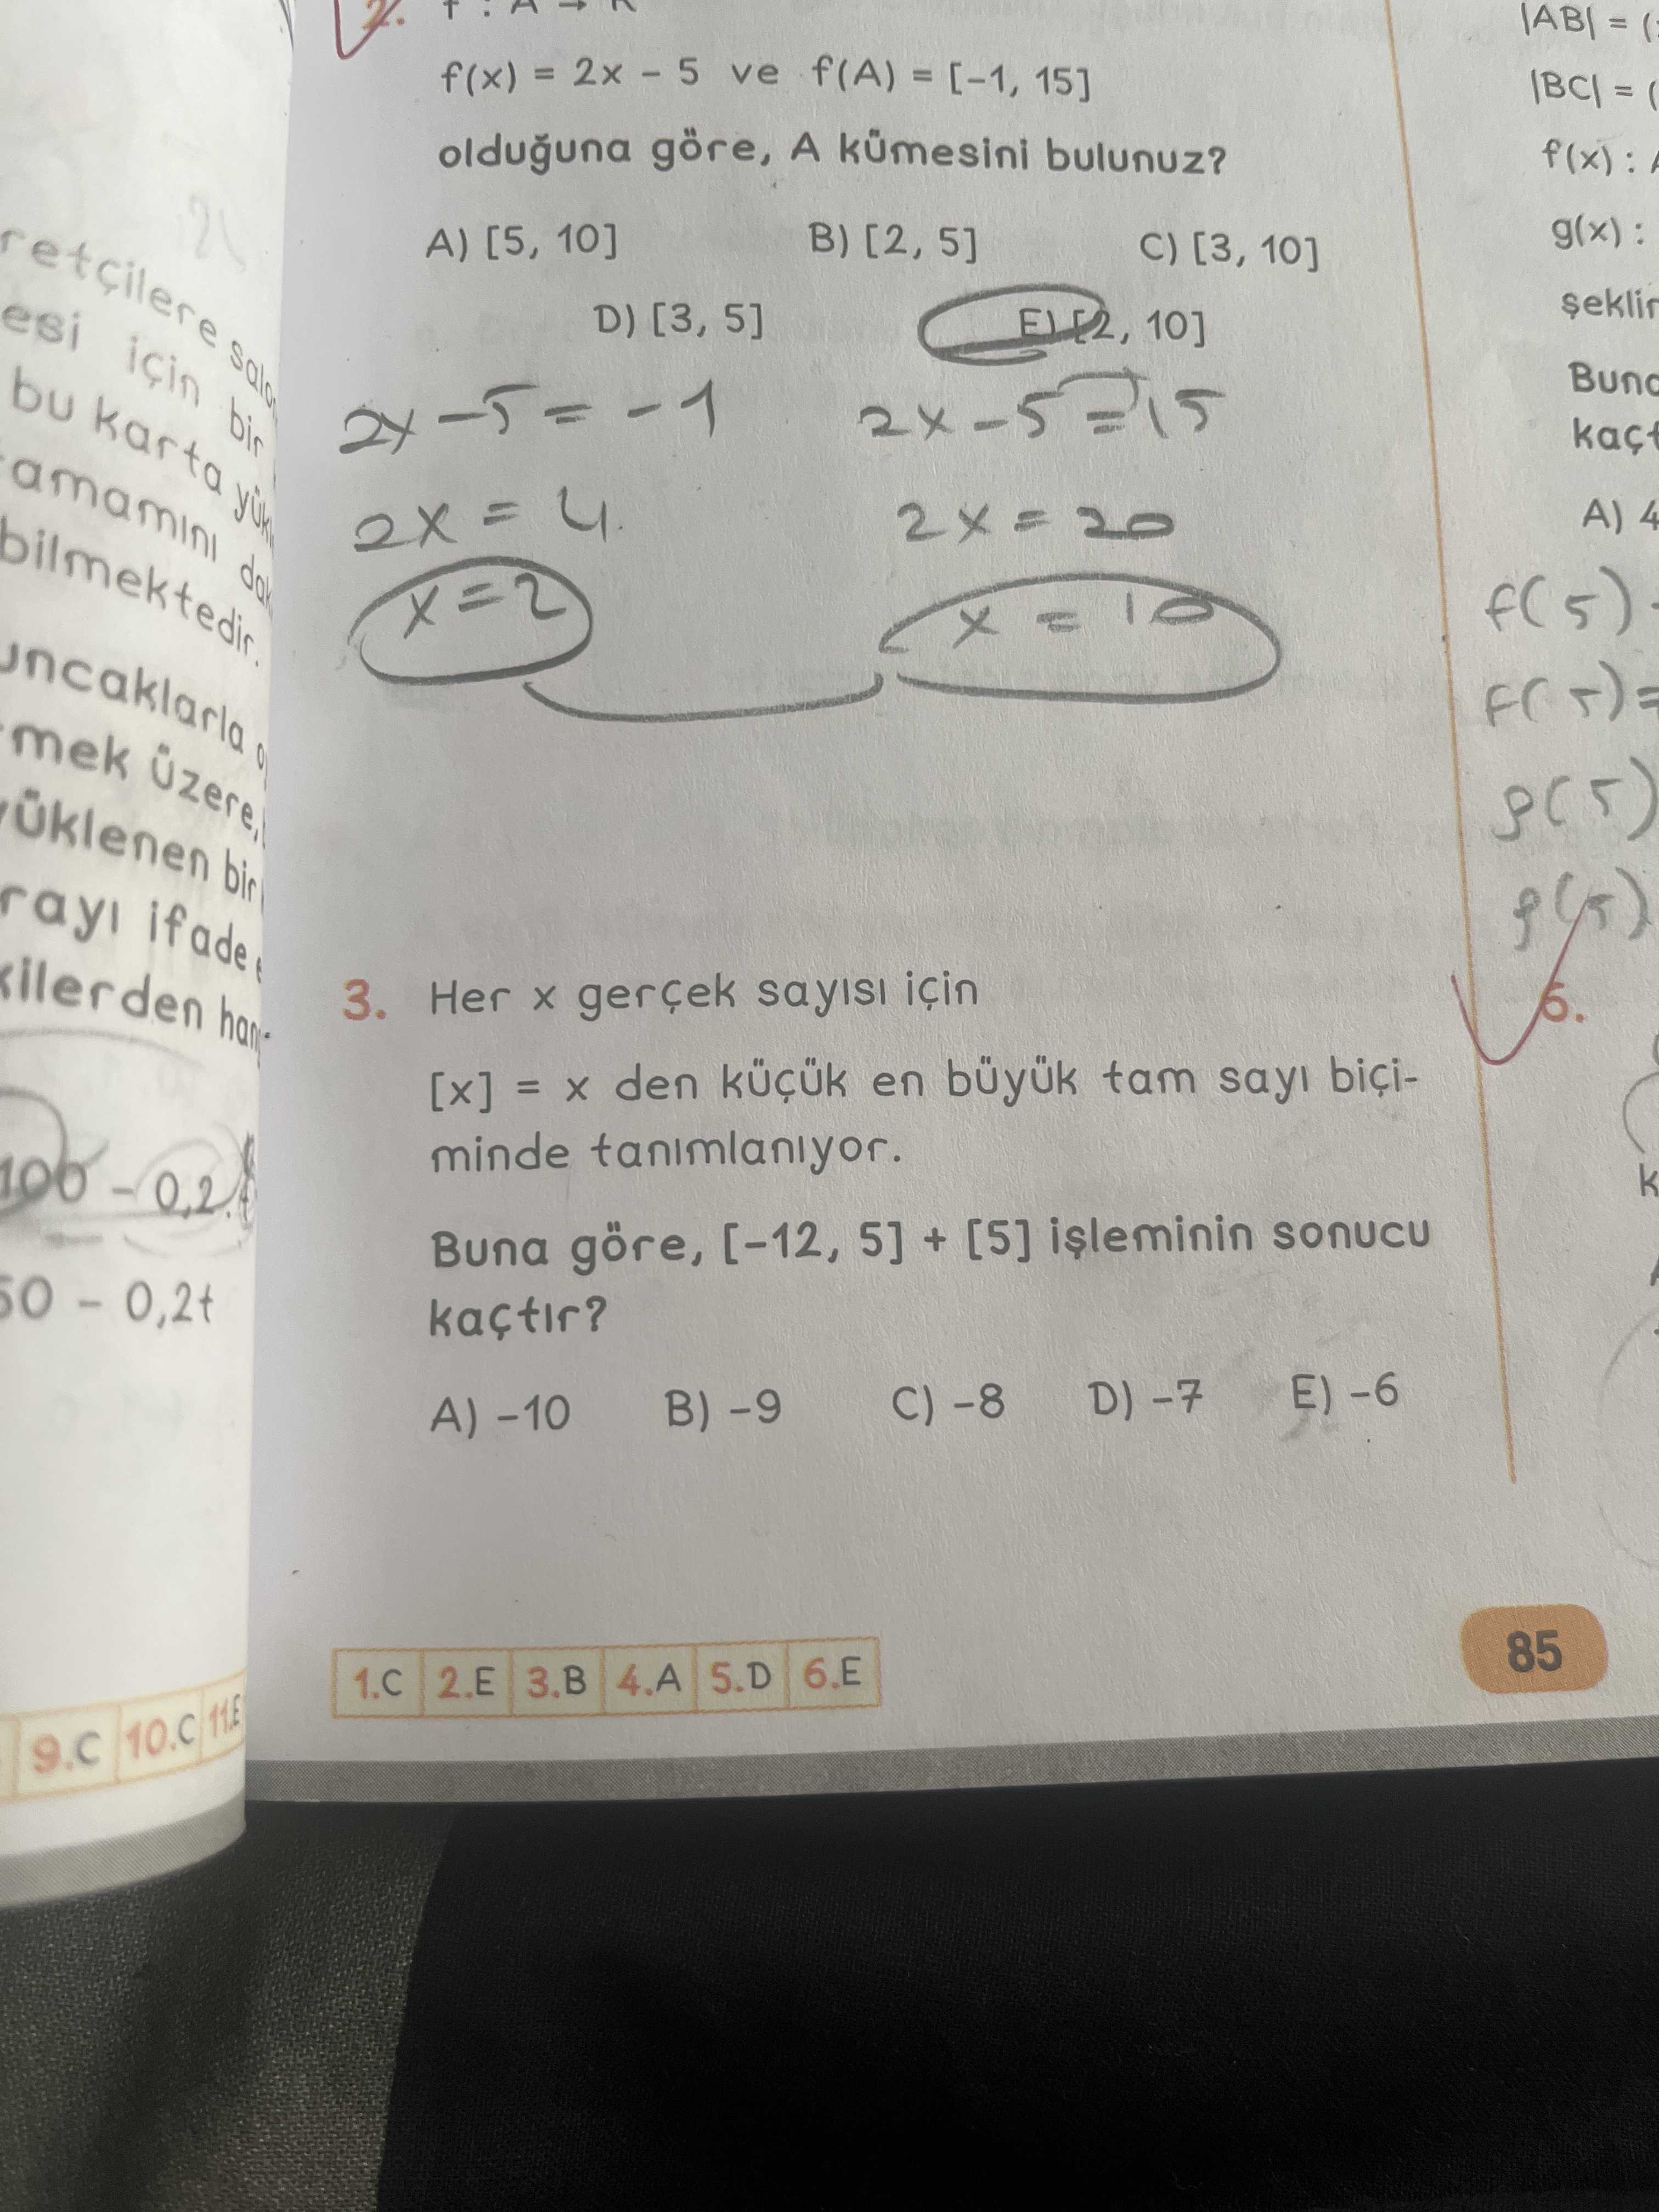 retçilere
esi için bir
bu karta
amamını
bilmektedir.
uncaklarla
mek üzere,
yüklenen bir
rayı ifade
kilerden
100 - 0,2
50 - 0,2t
9.C 10.C 11.E
2. f : A → R
f(x) = 2x - 5 ve f(A) = [-1, 15]
olduğuna göre, A kümesini bulunuz?
A) [5, 10] B) [2, 5] C) [3, 10]
D) [3, 5] E) [2, 10]
2x - 5 = -1 2x - 5 = 15
2x = 4 2x = 20
x = 2 x = 10
3. Her x gerçek sayısı için
[x] = x den küçük en büyük tam sayı biçi-
minde tanımlanıyor.
Buna göre, [-12, 5] + [5] işleminin sonucu
kaçtır?
A) -10 B) -9 C) -8 D) -7 E) -6
1.C 2.E 3.B 4.A 5.D 6.E
85
|AB| = (
|BC| = (
f(x) :
g(x) :
A) 4
f(5)
f(5) =
g(5)
g(5)
6.